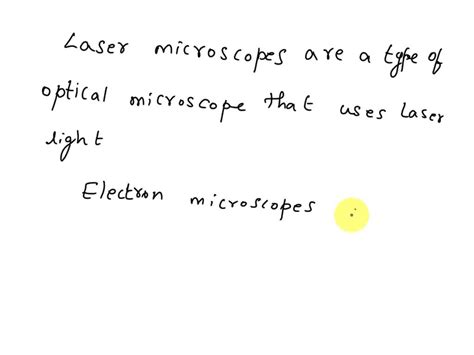 Laser microscopes are a type of
optical microscope that uses Laser
light
Electron microscopes